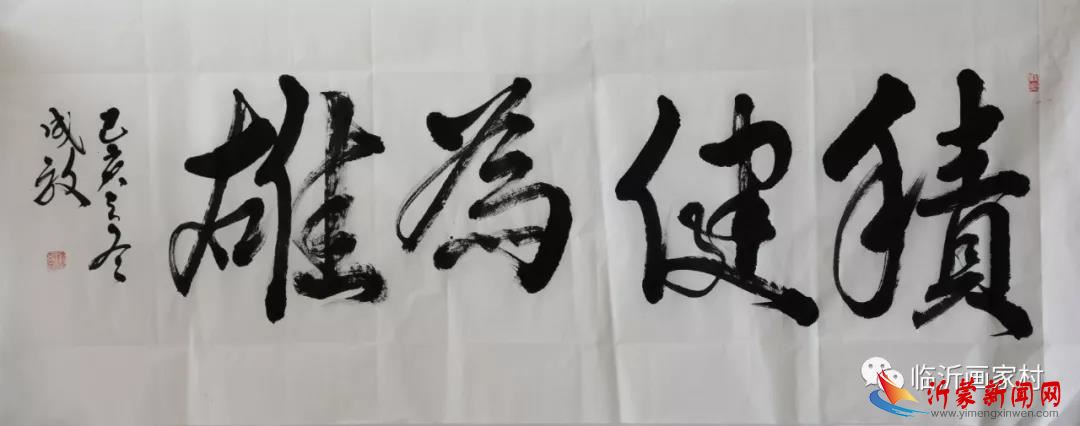 積健為雄
己亥之冬
成敏
临沂画家村
沂蒙新闻网
www.yimengxinwen.com